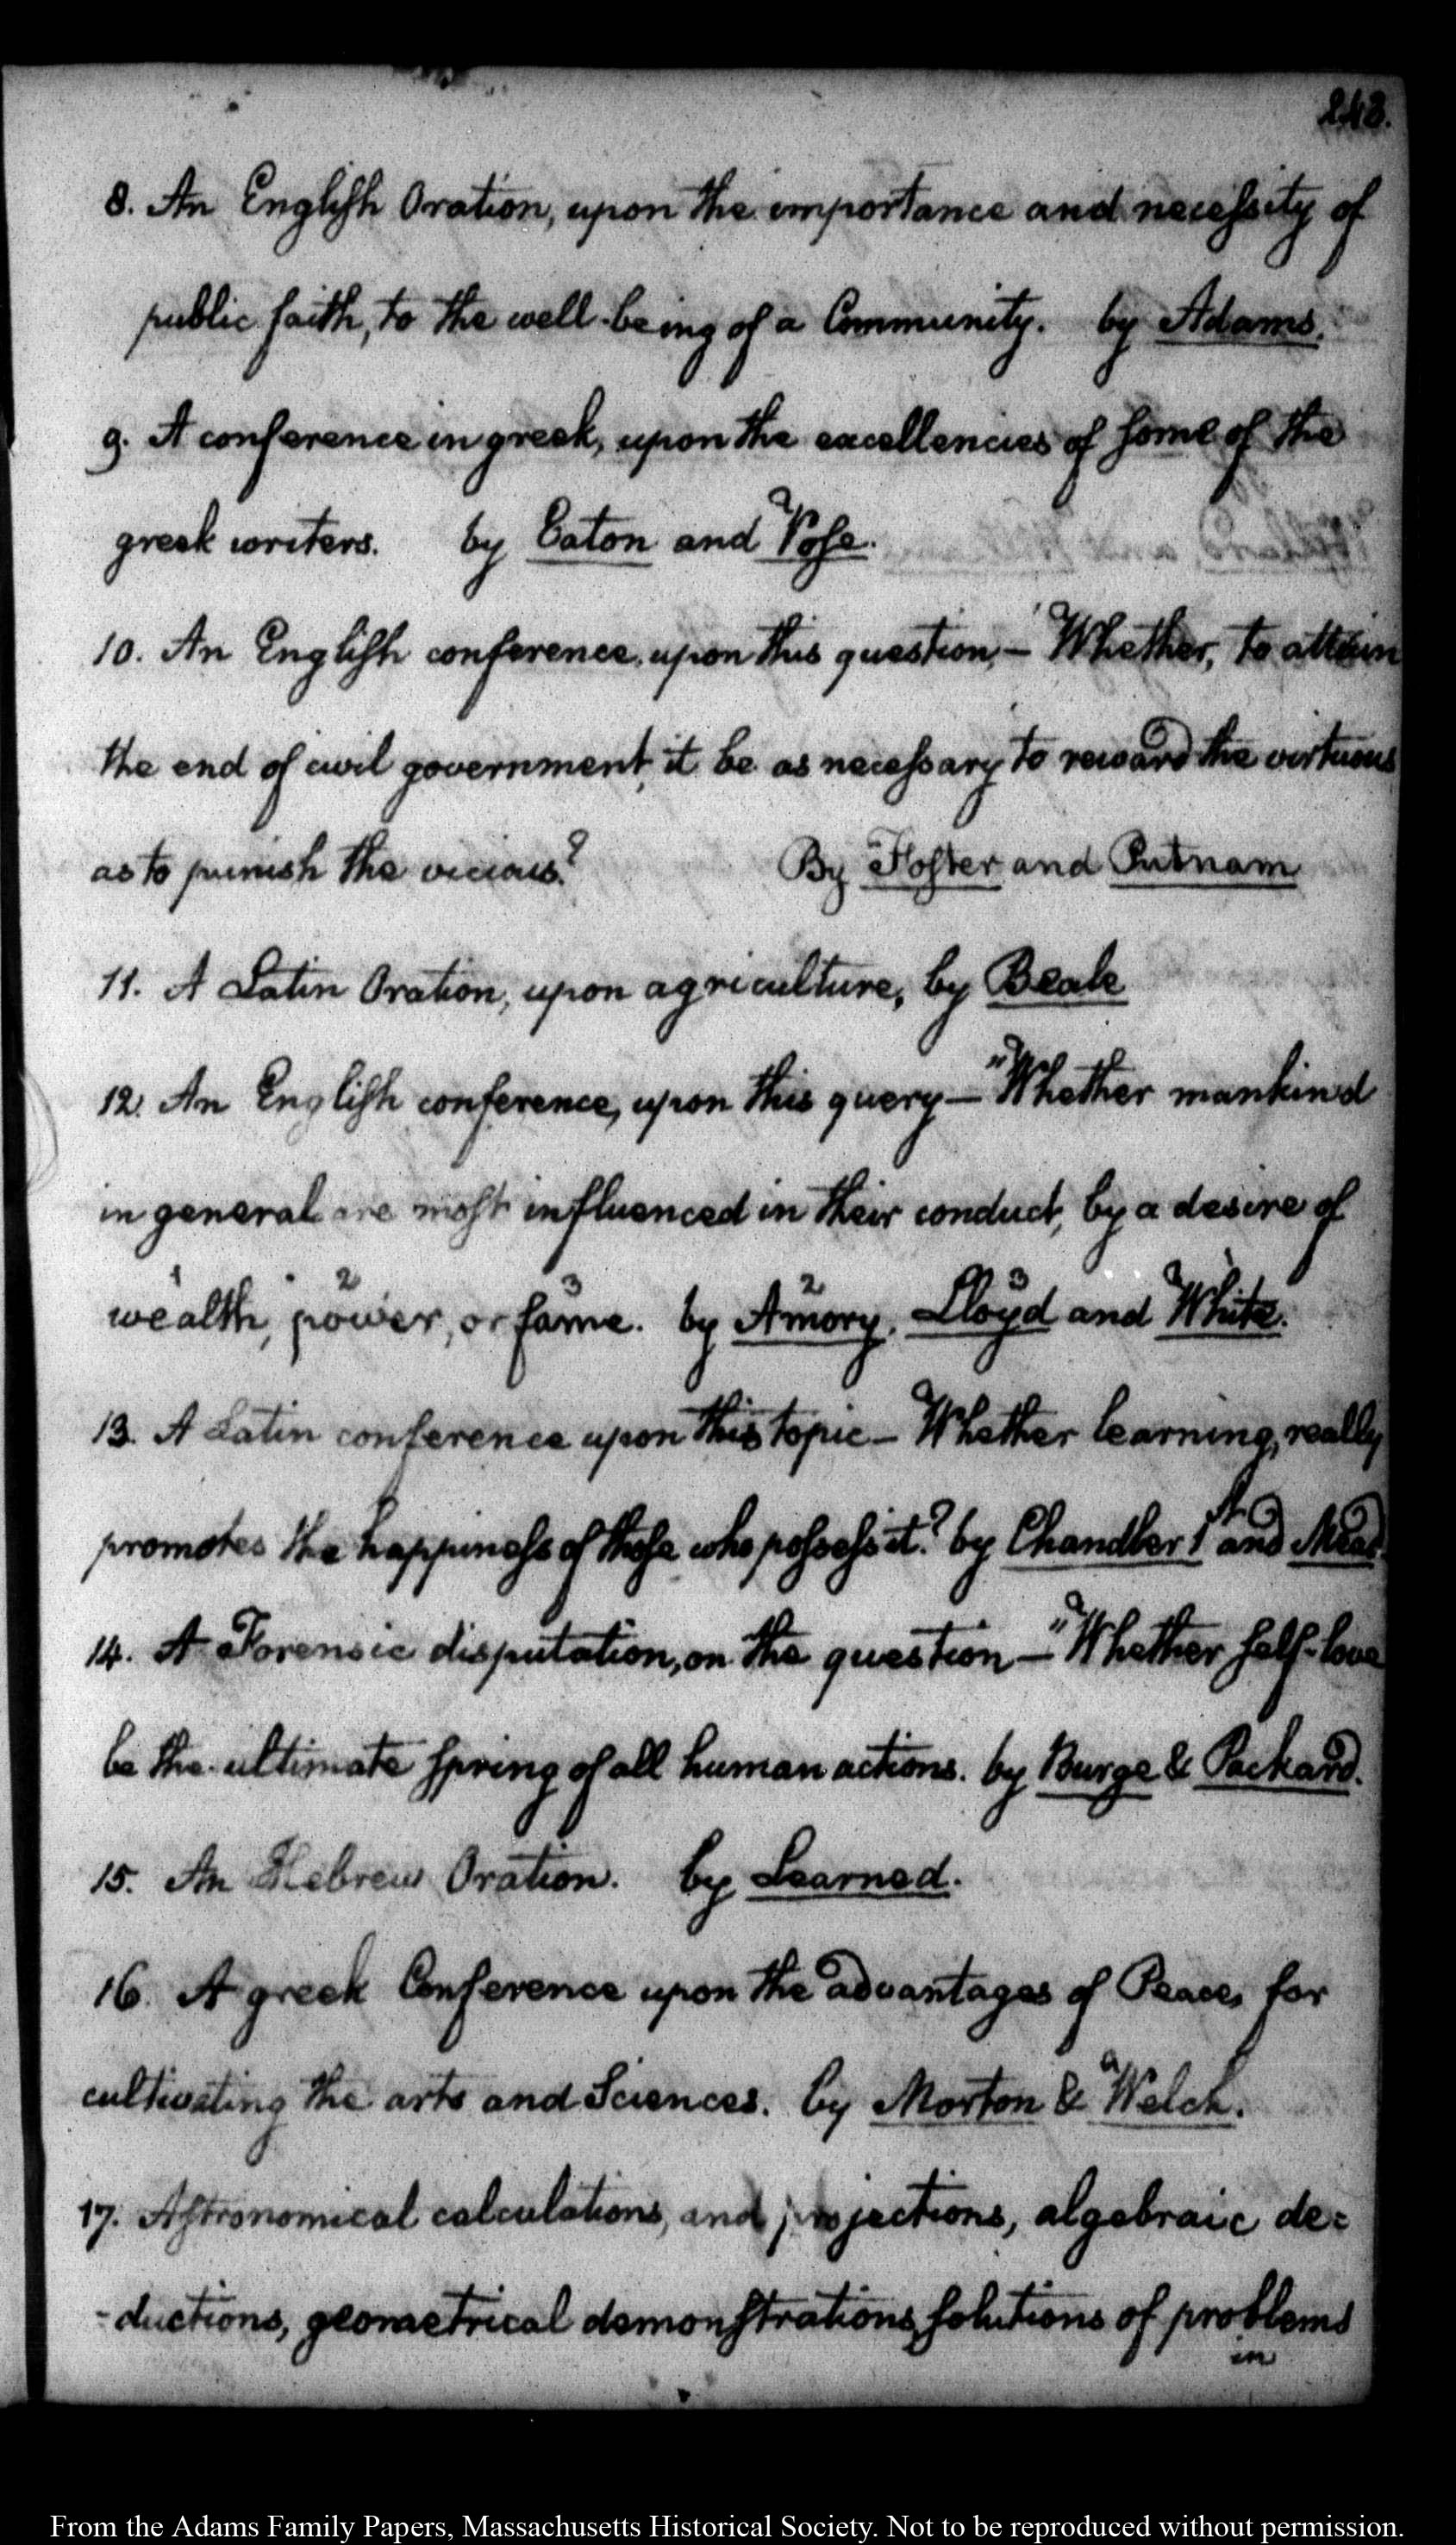 243.
8. An Engliſh Oration, upon the importance and neceſsity of
public faith, to the well-being of a Community. by Adams.
9. A conference in greek, upon the excellencies of ſome of the
greek writers. by Eaton and Voſe.
10. An Engliſh conference, upon this question, — "Whether, to attain
the end of civil government, it be as neceſsary to reward the virtuous
as to punish the vicious?" By Foſter and Putnam
11. A Latin Oration, upon agriculture, by Beale
12. An Engliſh conference, upon this query — "Whether mankind
in general are moſt influenced in their conduct, by a desire of
1 2 3 2 3 1
wealth, power, or fame. by Amory, Lloyd and White.
13. A Latin conference upon this topic — Whether learning, really
promotes the happineſs of thoſe who poſseſs it? by Chandler 1st and Mead
14. A Forensic disputation, on the question — "Whether ſelf-love
be the ultimate ſpring of all human actions. by Burge & Packard.
15. An Hebrew Oration. by Learned.
16. A greek Conference upon the advantages of Peace, for
cultivating the arts and Sciences. by Morton & Welch.
17. Aſtronomical calculations, and projections, algebraic de=
-ductions, geometrical demonſtrations, ſolutions of problems
in
From the Adams Family Papers, Massachusetts Historical Society. Not to be reproduced without permission.